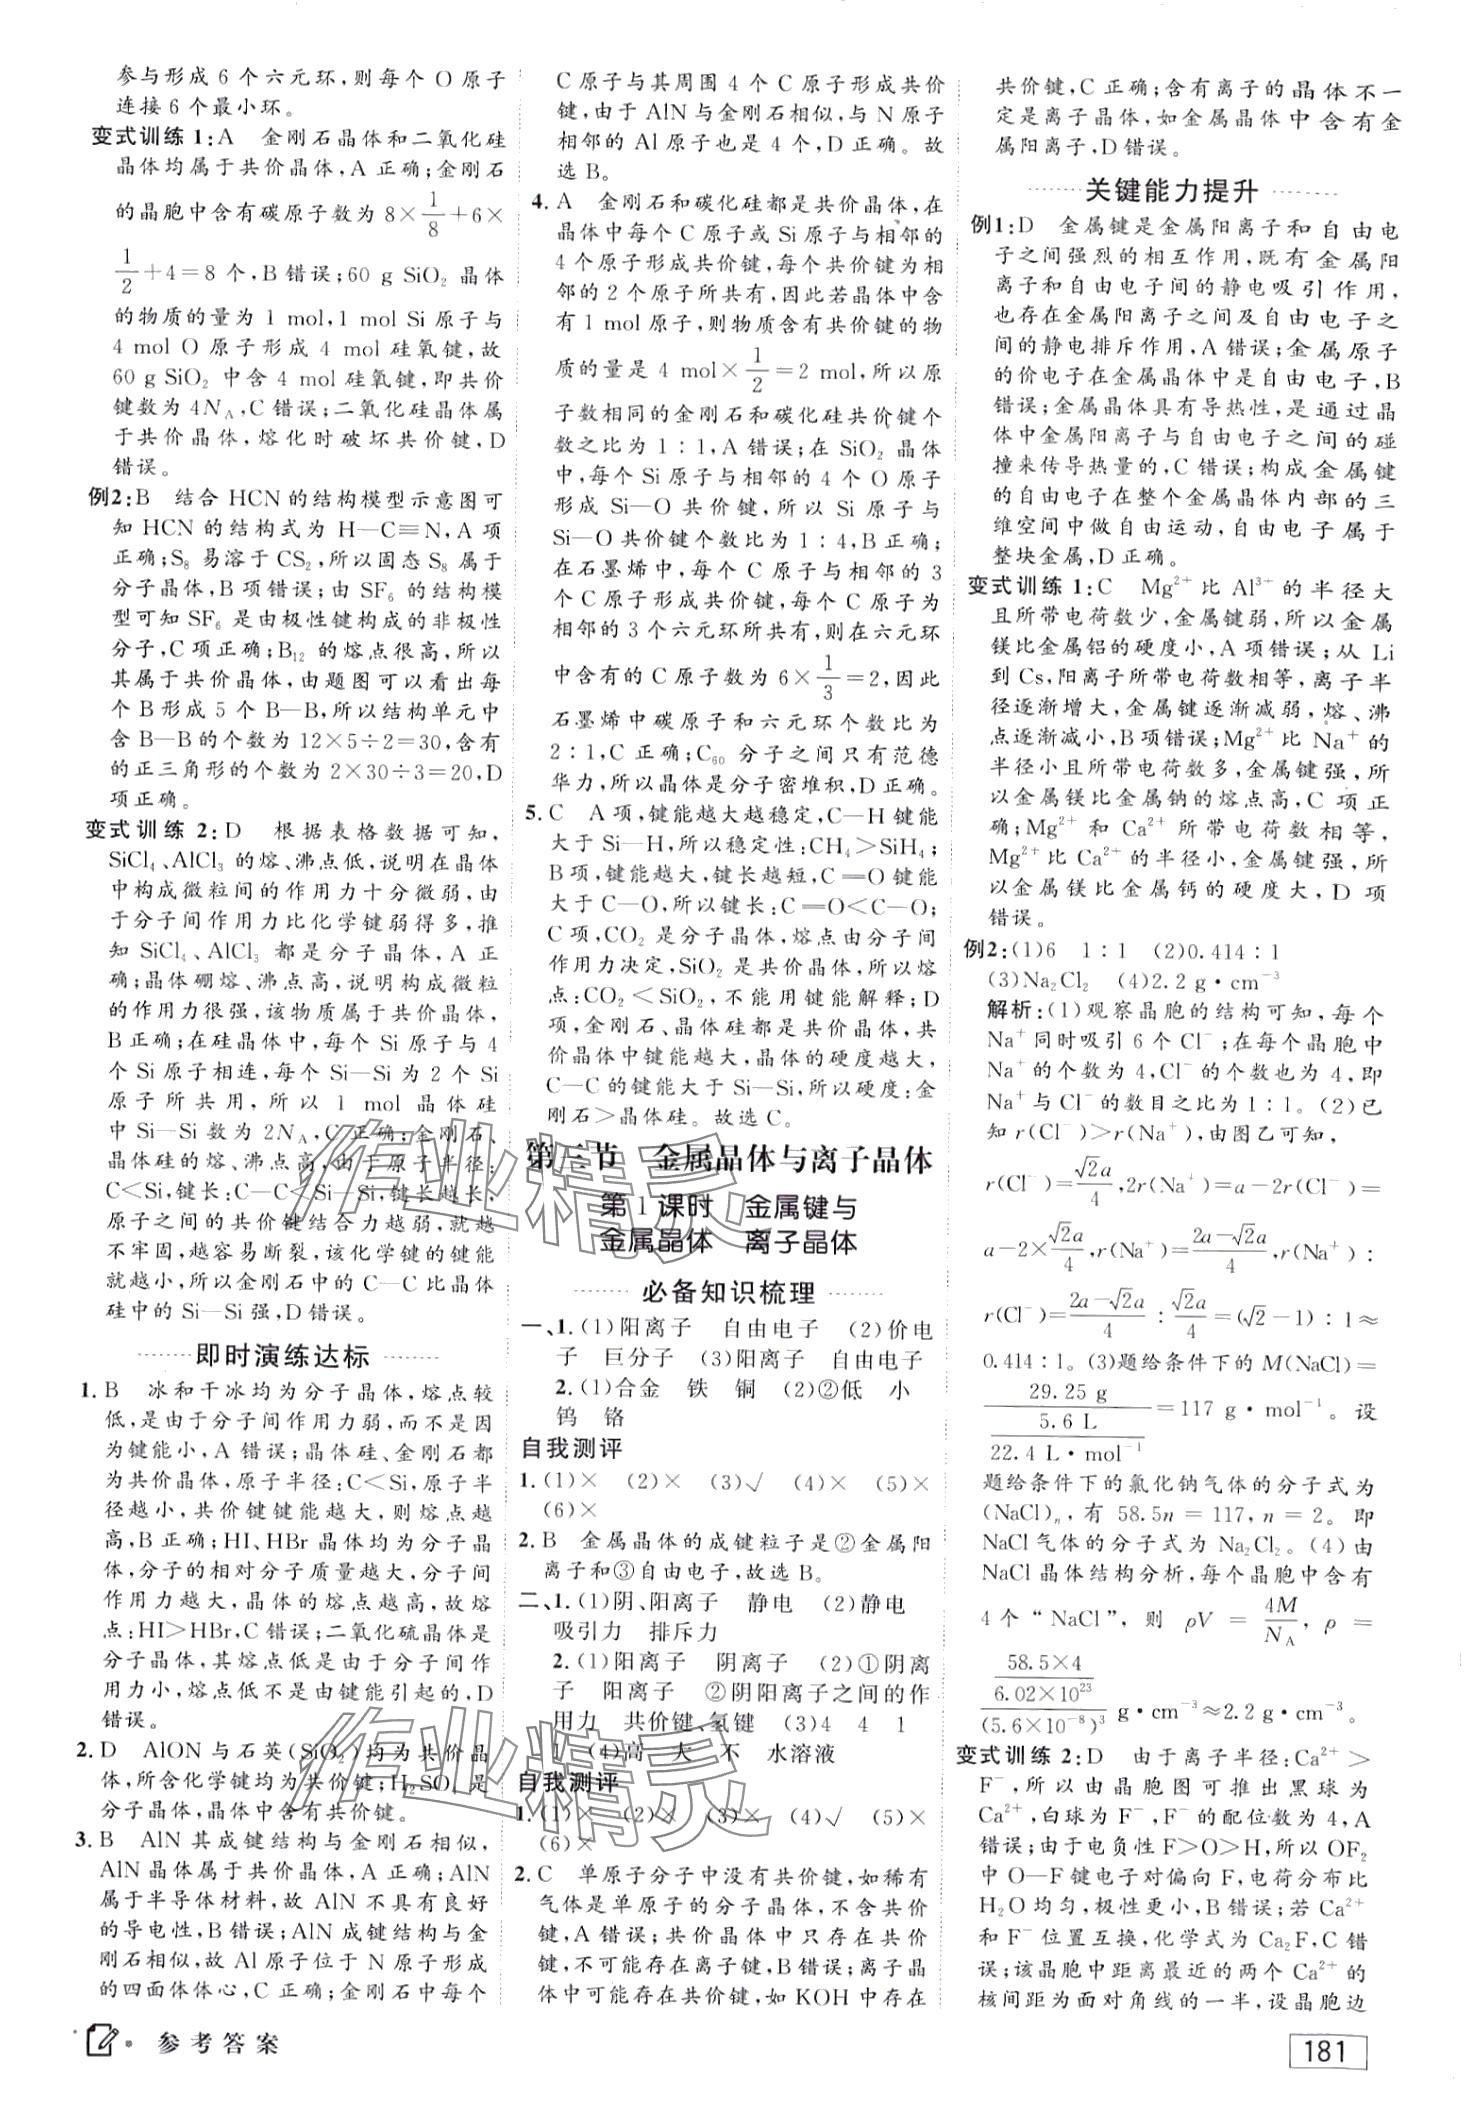 参与形成 6 个六元环,则每个 O 原子
连接 6 个最小环。
变式训练 1:A 金刚石晶体和二氧化硅
晶体均属于共价晶体,A 正确;金刚石
的晶胞中含有碳原子数为 8×1/8+6×
1/2+4=8 个,B 错误;60 g SiO₂ 晶体
的物质的量为 1 mol,1 mol Si 原子与
4 mol O 原子形成 4 mol 硅氧键,故
60 g SiO₂ 中含 4 mol 硅氧键,即共价
键数为 4N_A,C 错误;二氧化硅晶体属
于共价晶体,熔化时破坏共价键,D
错误。
例2:B 结合 HCN 的结构模型示意图可
知 HCN 的结构式为 H—C≡N,A 项
正确;S₈ 易溶于 CS₂,所以固态 S₈ 属于
分子晶体,B 项错误;由 SF₆ 的结构模
型可知 SF₆ 是由极性键构成的非极性
分子,C 项正确;B₁₂ 的熔点很高,所以
其属于共价晶体,由题图可以看出每
个 B 形成 5 个 B—B,所以结构单元中
含 B—B 的个数为 12×5÷2=30,含有
的正三角形的个数为 2×30÷3=20,D
项正确。
变式训练 2:D 根据表格数据可知,
SiCl₄、AlCl₃ 的熔、沸点低,说明在晶体
中构成微粒间的作用力十分微弱,由
于分子间作用力比化学键弱得多,推
知 SiCl₄、AlCl₃ 都是分子晶体,A 正
确;晶体硼熔、沸点高,说明构成微粒
的作用力很强,该物质属于共价晶体,
B 正确;在硅晶体中,每个 Si 原子与 4
个 Si 原子相连,每个 Si—Si 为 2 个 Si
原子所共用,所以 1 mol 晶体硅
中 Si—Si 数为 2N_A,C 正确;金刚石、
晶体硅的熔、沸点高,由于原子半径:
C<Si,键长:C—C<Si—Si,键长越长,
原子之间的共价键结合力越弱,就越
不牢固,越容易断裂,该化学键的键能
就越小,所以金刚石中的 C—C 比晶体
硅中的 Si—Si 强,D 错误。
即时演练达标
1. B 冰和干冰均为分子晶体,熔点较
低,是由于分子间作用力弱,而不是因
为键能小,A 错误;晶体硅、金刚石都
为共价晶体,原子半径:C<Si,原子半
径越小,共价键键能越大,则熔点越
高,B 正确;HI、HBr 晶体均为分子晶
体,分子的相对分子质量越大,分子间
作用力越大,晶体的熔点越高,故熔
点:HI>HBr,C 错误;二氧化硫晶体是
分子晶体,其熔点低是由于分子间作
用力小,熔点低不是由键能引起的,D
错误。
2. D AlON 与石英(SiO₂)均为共价晶
体,所含化学键均为共价键;H₂SO₄ 是
分子晶体,晶体中含有共价键。
3. B AlN 其成键结构与金刚石相似,
AlN 晶体属于共价晶体,A 正确;AlN
属于半导体材料,故 AlN 不具有良好
的导电性,B 错误;AlN 成键结构与金
刚石相似,故 Al 原子位于 N 原子形成
的四面体体心,C 正确;金刚石中每个
C 原子与其周围 4 个 C 原子形成共价
键,由于 AlN 与金刚石相似,与 N 原子
相邻的 Al 原子也是 4 个,D 正确。故
选 B。
4. A 金刚石和碳化硅都是共价晶体,在
晶体中每个 C 原子或 Si 原子与相邻的
4 个原子形成共价键,每个共价键为相
邻的 2 个原子所共有,因此若晶体中含
有 1 mol 原子,则物质含有共价键的物
质的量是 4 mol×1/2=2 mol,所以原
子数相同的金刚石和碳化硅共价键个
数之比为 1∶1,A 错误;在 SiO₂ 晶体
中,每个 Si 原子与相邻的 4 个 O 原子
形成 Si—O 共价键,所以 Si 原子与
Si—O 共价键个数比为 1∶4,B 正确;
在石墨烯中,每个 C 原子与相邻的 3
个 C 原子形成共价键,每个 C 原子为
相邻的 3 个六元环所共有,则在六元环
中含有的 C 原子数为 6×1/3=2,因此
石墨烯中碳原子和六元环个数比为
2∶1,C 正确;C₆₀ 分子之间只有范德
华力,所以晶体是分子密堆积,D 正确。
5. C A 项,键能越大越稳定,C—H 键能
大于 Si—H,所以稳定性:CH₄>SiH₄;
B 项,键能越大,键长越短,C═O 键能
大于 C—O,所以键长:C═O<C—O;
C 项,CO₂ 是分子晶体,熔点由分子间
作用力决定,SiO₂ 是共价晶体,所以熔
点:CO₂<SiO₂,不能用键能解释;D
项,金刚石、晶体硅都是共价晶体,共
价晶体中键能越大,晶体的硬度越大,
C—C 的键能大于 Si—Si,所以硬度:金
刚石>晶体硅。故选 C。
第三节 金属晶体与离子晶体
第 1 课时 金属键与
金属晶体 离子晶体
必备知识梳理
一、1.(1)阳离子 自由电子 (2)价电
子 巨分子 (3)阳离子 自由电子
2.(1)合金 铁 铜 (2)②低 小
钨 铬
自我测评
1.(1)× (2)× (3)√ (4)× (5)×
(6)×
2. B 金属晶体的成键粒子是②金属阳
离子和③自由电子,故选 B。
二、1.(1)阴、阳离子 静电 (2)静电
吸引力 排斥力
2.(1)阳离子 阴离子 (2)①阴离
子 阳离子 ②阴阳离子之间的作
用力 共价键、氢键 (3)4 4 1
1 (4)高 大 不 水溶液
自我测评
1.(1)× (2)× (3)× (4)√ (5)×
(6)×
2. C 单原子分子中没有共价键,如稀有
气体是单原子的分子晶体,不含共价
键,A 错误;共价晶体中只存在共价
键,不可能存在离子键,B 错误;离子晶
体中可能存在共价键,如 KOH 中存在
共价键,C 正确;含有离子的晶体不一
定是离子晶体,如金属晶体中含有金
属阳离子,D 错误。
关键能力提升
例1:D 金属键是金属阳离子和自由电
子之间强烈的相互作用,既有金属阳
离子和自由电子间的静电吸引作用,
也存在金属阳离子之间及自由电子之
间的静电排斥作用,A 错误;金属原子
的价电子在金属晶体中是自由电子,B
错误;金属晶体具有导热性,是通过晶
体中金属阳离子与自由电子之间的碰
撞来传导热量的,C 错误;构成金属键
的自由电子在整个金属晶体内部的三
维空间中做自由运动,自由电子属于
整块金属,D 正确。
变式训练 1:C Mg²⁺ 比 Al³⁺ 的半径大
且所带电荷数少,金属键弱,所以金属
镁比金属铝的硬度小,A 项错误;从 Li
到 Cs,阳离子所带电荷数相等,离子半
径逐渐增大,金属键逐渐减弱,熔、沸
点逐渐减小,B 项错误;Mg²⁺ 比 Na⁺ 的
半径小且所带电荷数多,金属键强,所
以金属镁比金属钠的熔点高,C 项正
确;Mg²⁺ 和 Ca²⁺ 所带电荷数相等,
Mg²⁺ 比 Ca²⁺ 的半径小,金属键强,所
以金属镁比金属钙的硬度大,D 项
错误。
例2:(1)6 1∶1 (2)0.414∶1
(3)Na₂Cl₂ (4)2.2 g·cm⁻³
解析:(1)观察晶胞的结构可知,每个
Na⁺ 同时吸引 6 个 Cl⁻;在每个晶胞中
Na⁺ 的个数为 4,Cl⁻ 的个数也为 4,即
Na⁺ 与 Cl⁻ 的数目之比为 1∶1。(2)已
知 r(Cl⁻)>r(Na⁺),由图乙可知,
r(Cl⁻)=√2a/4,2r(Na⁺)=a−2r(Cl⁻)=
a−2×√2a/4,r(Na⁺)=(2a−√2a)/4,r(Na⁺)∶
r(Cl⁻)=(2a−√2a)/4∶√2a/4=(√2−1)∶1≈
0.414∶1。(3)题给条件下的 M(NaCl)=
29.25 g/(5.6 L/22.4 L·mol⁻¹)=117 g·mol⁻¹。设
题给条件下的氯化钠气体的分子式为
(NaCl)ₙ,有 58.5n=117,n=2。即
NaCl 气体的分子式为 Na₂Cl₂。(4)由
NaCl 晶体结构分析,每个晶胞中含有
4 个“NaCl”,则 ρV=4M/N_A,ρ=
(58.5×4/6.02×10²³)/(5.6×10⁻⁸)³ g·cm⁻³≈2.2 g·cm⁻³。
变式训练 2:D 由于离子半径:Ca²⁺>
F⁻,所以由晶胞图可推出黑球为
Ca²⁺,白球为 F⁻,F⁻ 的配位数为 4,A
错误;由于电负性 F>O>H,所以 OF₂
中 O—F 键电子对偏向 F,电荷分布比
H₂O 均匀,极性更小,B 错误;若 Ca²⁺
和 F⁻ 位置互换,化学式为 Ca₂F,C 错
误;该晶胞中距离最近的两个 Ca²⁺ 的
核间距为面对角线的一半,设晶胞边
参考答案
181
作业精灵
作业精灵